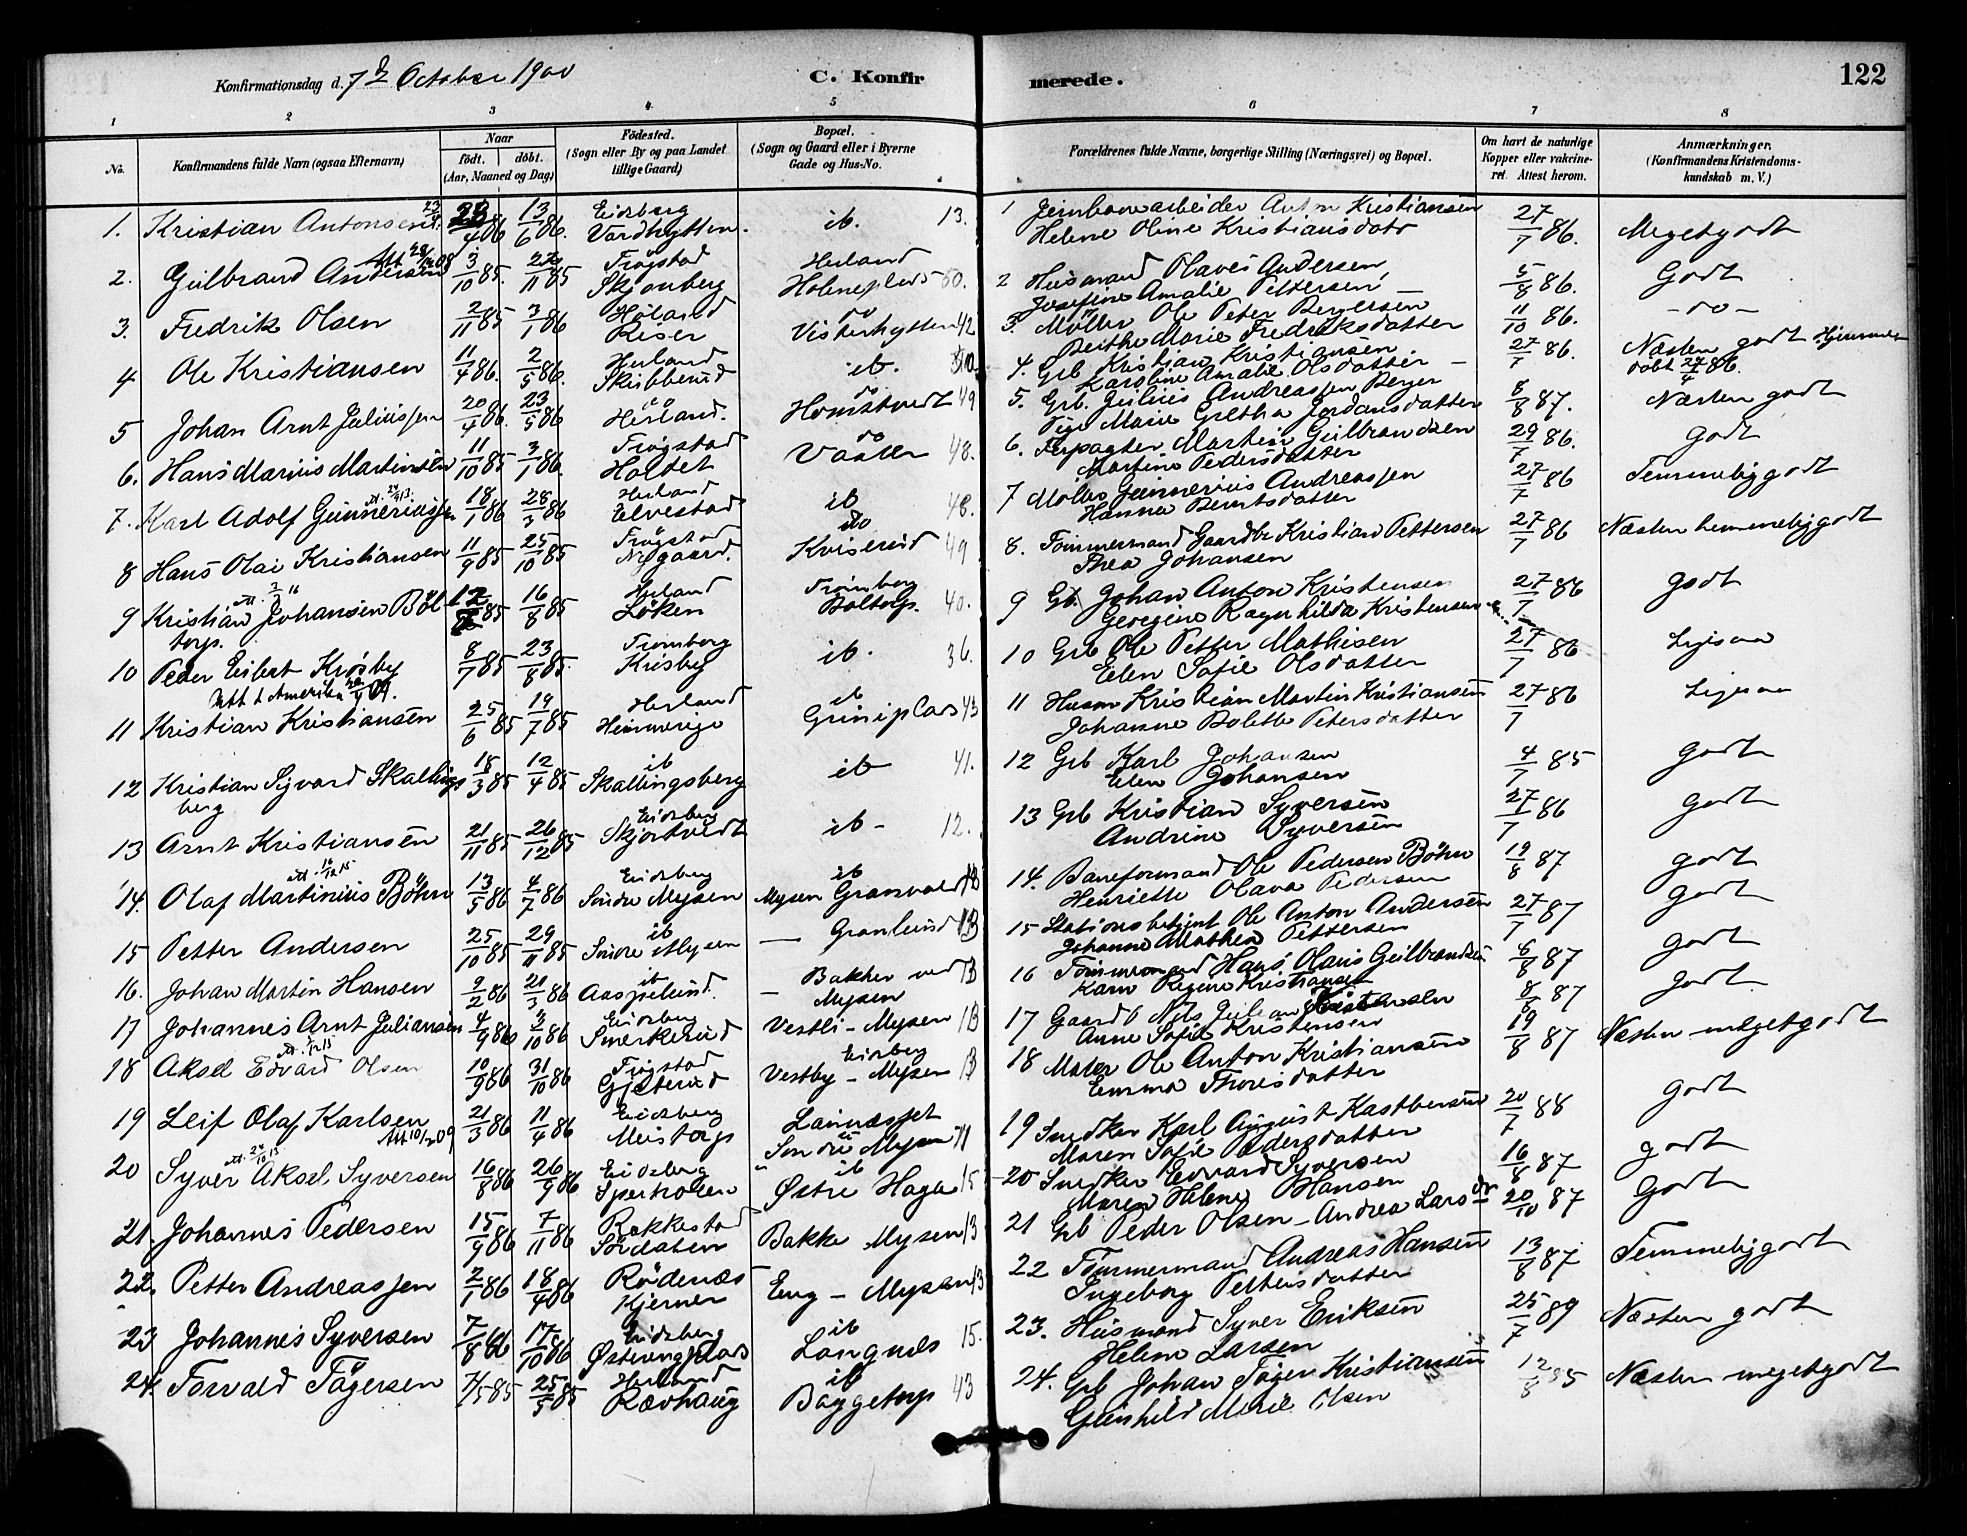 Konfirmationsdag d. 7de October 1900
C. Konfirmerede.
122
1 2 3 4 5 6 7 8
No.
Konfirmandens fulde Navn (ogsaa Efternavn)
Naar
födt. döbt.
(Aar, Maaned og Dag)
Födested.
(Sogn eller By og paa Landet
tillige Gaard)
Bopæl.
(Sogn og Gaard eller i Byerne
Gade og Hus-No.
Forældrenes fulde Navne, borgerlige Stilling (Næringsvei) og Bopæl.
Om havt de naturlige
Kopper eller vakcine-
ret. Attest herom.
Anmærkninger.
(Konfirmandens Kristendoms-
kundskab m. V.)
1. Kristian Antonsen 13/6 86. Eidsberg ib. 13. 1 Jernbanearbeider Anton Kristiansen 27/7 86. Megetgodt
Helene Oline Kristiansdatr
2. Gulbrand Andersen 3/10 85. 22/11 85 Trögstad Herland 50. 2 Husmand Olaves Andersen, 5/8 86. Godt
Skjönberg Josefine Amalie Pettersen
3. Fredrik Olsen 2/11 85 3/1 86 Höland do 42 3. Möller Ole Peter Bergersen 11/10 86. - do -
Riser Visterhytten Berthe Marie Fredriksdatter
4 Ole Kristiansen 11/4 86. 2/5 86. Herland ib. 4. Grb Kristian Kristiansen 27/7 86. Næsten godt Hjemme
Skubberud Karoline Amalie Olsdatter döbt 24/4 86.
5 Johan Arnt Juliussen 20/4 86. 23/5 86 do do 49 5. Grb. Julius Andreassen Berger 8/8 87. Næsten godt
Herland. Homstvedt Pige Marie Grethe Jordansdatter
6. Hans Marius Martinsen 11/10 85 3/1 86 Trögstad do 48. 6. Forpagter Martin Gulbrandsen 29/7 86. godt
Holtet Martine Pedersdatter
7. Karl Adolf Gunneriussen 18/1 86 28/3 86 Herland ib 48. 7 Möller Gunnerius Andreassen 27/7 86 Temmeligodt
Elvestad Hanna Berntsdatter
8 Hans Olai Kristiansen 11/9 85 25/10 85 Trögstad do 49 8. Tömmermand Gaardbr Kristian Pettersen 27/7 86 Næsten temmeligodt
Nygaard. Kviserud Thea Johansen
9 Kristian Johansen Böltorp. 85 16/8 85 Herland Trömborg 40. 9 Gb. Johan Anton Kristensen 27/7 86 godt
Löken Boltorp. Georgine Ragnhilda Kristensen
10 Peder Eibert Krosby 8/7 85 23/8 85. Tromborg ib. 36. 10 Grb Ole Petter Mathisen 27/7 86 Ligesaa
Att t Amerika 09. Krisby Elen Sofie Olsdatter
11 Kristian Kristiansen 25/6 85 19/7 85 Herland ib 43 11 Husm Kristian Martin Kristiansen 27/7 86 Ligesaa
Grinisplads Johanne Bolette Petersdatter
12 Kristian Sigvard Skallings 18/3 85 12/4 85 ib ib 41. 12 Grb Karl Johansen 4/7 85 godt
berg Skallingsberg Elen Johansen
13 Arnt Kristiansen 21/11 85 26/12 85 Eidsberg ib - 12. 13 Grb Kristian Syversen 27/7 86 godt
Skjortvedt Andrine Syversen
14. Olaf Martinius Böhn 13/5 86 4/7 86 Eidsberg ib 14. Baneformand Ole Pedersen Böhn 19/8 87 godt
Söndre Mysen Mysen Granvold Henriette Olava Pedersen
15 Petter Andersen 25/10 85 29/11 85 ib - Granlund 13 15 Stationsbetjent Ole Anton Andersen 27/7 87 godt
Söndre Mysen Johanne Mathea Pettersen
16. Johan Martin Hansen 9/2 86 21/3 86 ib - Bakken ved 13 16 Tömmermand Hans Olaus Gulbrandsen 6/8 87 godt
Aaspelund. Mysen Karn Regine Kristiansen
17 Johannes Arnt Juliansen 4/9 86 3/10 86 Eidsberg Vestli - Mysen 13 17 Gaardb Nils Julian Kristensen 8/8 87 godt.
Smerkerud Anne Sofie Kristensen
18 Aksel Edvard Olsen 10/9 86 31/10 86 Trögstad Eidsberg 18 Maler Ole Anton Kristiansen 19/8 87 Næsten megetgodt
Gjeterud Vestby - Mysen 13 Emma Thoresdatter
19 Leif Olaf Karlsen 21/3 86 11/4 86 Eidsberg 19 Snedker Karl August Kastbersen 20/7 88 godt
Att 10/2 09 Meistorp Söndre Mysen Maren Sofie Pedersdatter
20 Syver Aksel Syversen 16/8 86 26/9 86 Eidsberg ib 15 20 Snedker Edvard Syversen 16/8 87 godt
Østre Haga Maren Helene Hansen
21. Johannes Pedersen 15/9 86 7/11 86 Rakkestad Bakke Mysen 13 21 Grb Peder Olsen - Andrea Larsdr 20/10 87 Godt
Sördalen
22. Petter Andreassen 2/1 86 18/4 86 Rödenæs Eng - Mysen 13 22 Tömmermand Andreas Hansen 13/8 87 Temmeligodt
Kjerner Ingeborg Pettersdatter
23 Johannes Syversen 7/8 86 17/10 86 Eidsberg ib 15. 23. Husmand Syver Eriksen 25/7 89 Næsten godt
Østerengplads Langnæs Helene Larsen
24. Torvald Tögersen 7/5 85 25/5 85 Herland ib 43 24. Grb Johan Töger Kristiansen 12/8 85 Næsten megetgodt
Rævhaug Baggetorp Gunhild Marie Olsen